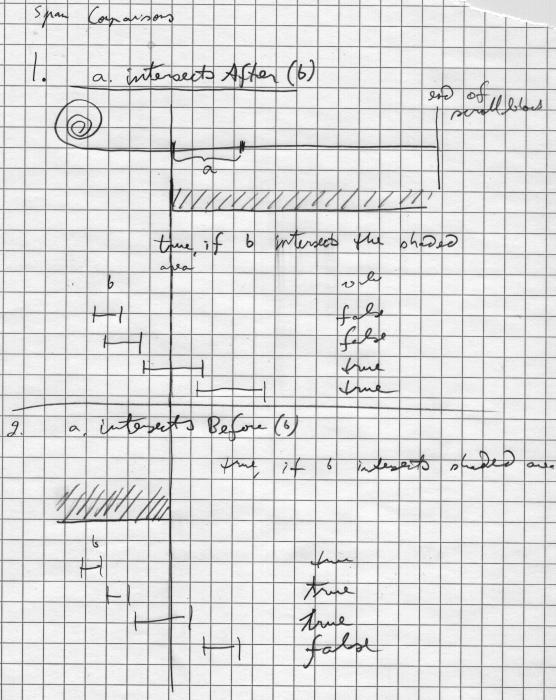 Span Comparisons
1. a. intersects After (b)
end of
scroll block
a
true, if b intersects the shaded
area
b
false
false
true
true
2. a. intersects Before (b)
true, if b intersects shaded area
b
true
true
true
false